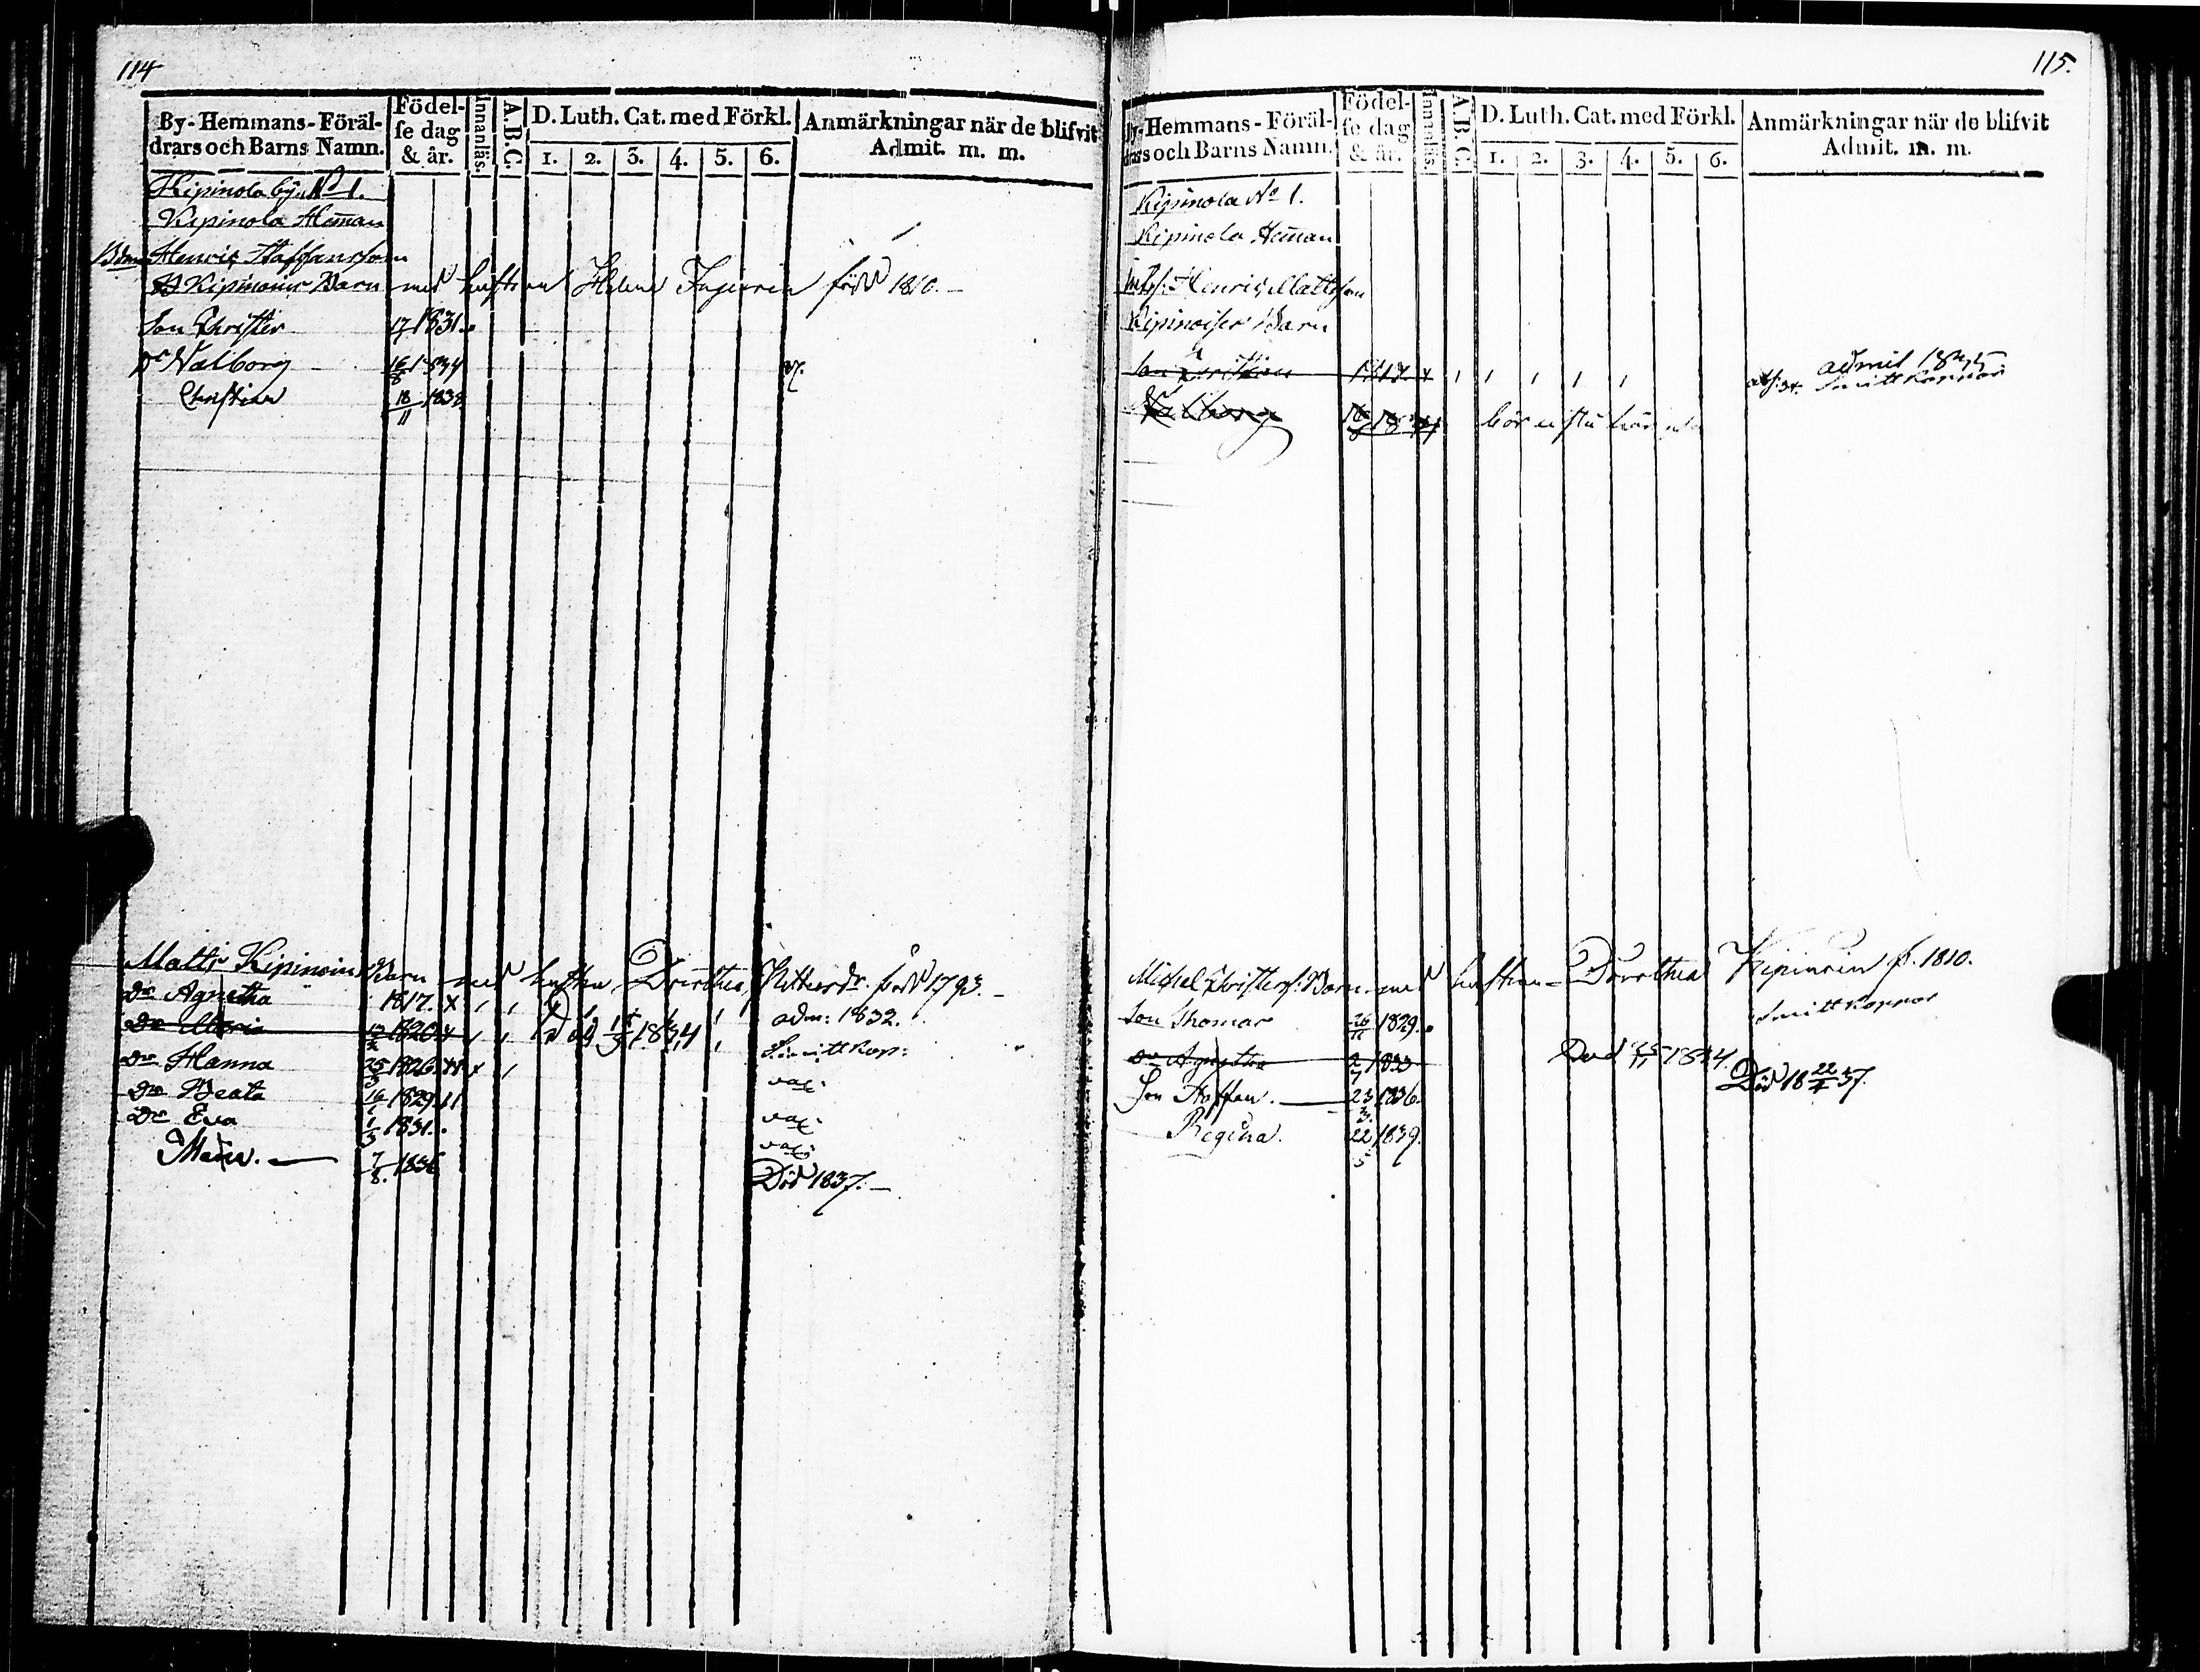 114
By-Hemmans-Föräl-
drars och Barns Namn.
Födel-
se dag
& år.
Innanläs.
A.B.C.
D. Luth. Cat. med Förkl.
1. 2. 3. 4. 5. 6.
Anmärkningar när de blifvit
Admit. m. m.
Kipinola by No 1.
Kipinola Heman
Henric Staffansson
Kipinoins Barn med hustrun Helena Ingerin född 1810. –
Son Christer 17 1831.
Dr Walborg 16/8 1834
Christian 18/11 1838
Matts Kipinoins Barn med hustru Dorothea Kittusdr. född 1793. –
Dr Agnetha 1817. x adm: 1832.
Dr Maria 1820 Död 1834 Smittkopp:
Dr Hanna 25 1826 vac:
Dr Beata 16/1 1829 vac:
Dr Eva 1/3 1831. vac:
7/8. 1836 Död 1837. –
115.
By-Hemmans-Föräl-
drars och Barns Namn.
Födel-
se dag
& år.
Innanläs.
A.B.C.
D. Luth. Cat. med Förkl.
1. 2. 3. 4. 5. 6.
Anmärkningar när de blifvit
Admit. m. m.
Kipinola No 1.
Kipinola Heman
Henric Mattsson
Kipinoises Barn
Son Christian admit 1835
Smittkoppor
Walborg bör
Michel Christers: Barn med hustrun Dorothea Kipinoin f. 1810.
Son Thomas 26 1829. Smittkoppor
Dr Agnetha 2/7 1833 Död 1834.
Son Staffan. 23/3. 1836. Död 18 22/4 37.
Regina. 22/5 1839.